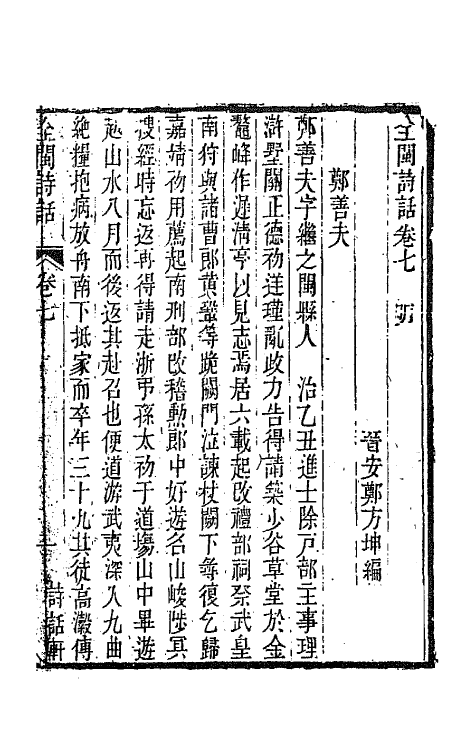 全閩詩話卷七 明
晉安鄭方坤編
鄭善夫
鄭善夫字繼之閩縣人 治乙丑進士除戸部主事理
滸墅關正德初逆瑾亂政力告得請築少谷草堂於金
鼇峰作遲淸亭以見志焉居六載起改禮部祠祭武皇
南狩與諸曹郎黃鞏等跪闕門泣諫杖闕下等復乞歸
嘉靖初用薦起南刑部改稽勲郎中好遊名山峻陟冥
搜經時忘返再得請走浙弔孫太初于道塲山中畢遊
越山水八月而後返其赴召也便道游武夷深入九曲
絶糧抱病放舟南下抵家而卒年三十九其徒高瀔傳
全閩詩話 卷七 一 詩話軒